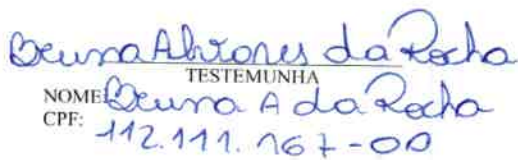 Bruna Antones da Rocha
TESTEMUNHA
NOME: Bruna A da Rocha
CPF: 112.111.167-00